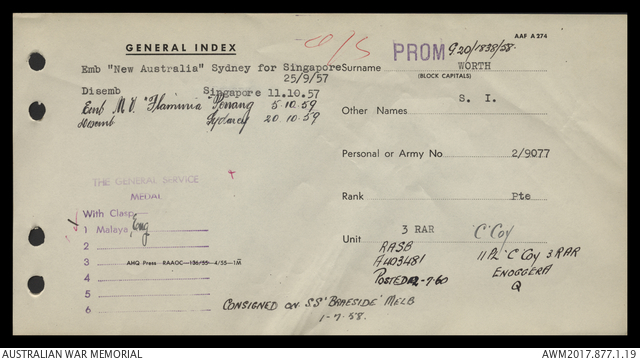 GENERAL INDEX
AAF A 274
PROM 920/1838/58.
Emb "New Australia" Sydney for Singapore
25/9/57
Surname WORTH
(BLOCK CAPITALS)
Disemb Singapore 11.10.57
Emb M.V. 'Flaminia' Penang 5.10.59
disemb Sydney 20.10.59
Other Names S. I.
Personal or Army No 2/9077
THE GENERAL SERVICE
MEDAL
Rank Pte
With Clasp
1 Malaya, Eng
2
3 AHQ Press RAAOC—136/55—4/55—1M
4
5
6
Unit 3 RAR 'C' Coy
RASB
A403481
POSTED 2-7-60
11 PL 'C' COY 3 RAR
ENOGGERA
Q
CONSIGNED ON SS 'BRAESIDE' MELB
1-7-58.
AUSTRALIAN WAR MEMORIAL
AWM2017.877.1.19